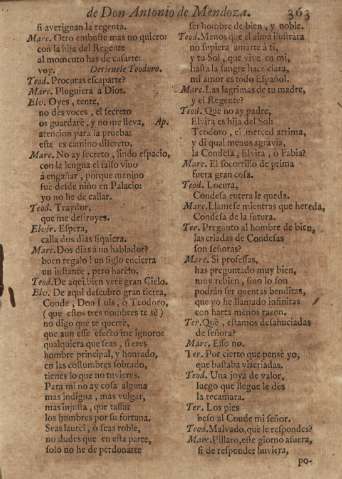 de Don Antonio de Mendoza. 363
si averiguan la regenta.
Marc. Otro embuste mas no quiero:
con la hija del Regente
al momento has de casarte:
voy. Detienele Teodoro.
Teod. Procuras escaparte?
Marc. Pluguiera à Dios.
Elv. Oyes, tente,
no des voces, el secreto
os guardarè, y no me lleva, Ap.
atencion para la prueba:
este es camino discreto.
Marc. No ay secreto, lindo espacio,
con la lengua el tasto vivo
à engañar, porque menino
fue desde niño en Palacio:
yo no he de callar.
Teod. Traydor,
que me destruyes.
Elvir. Espera,
calla dos dias siquiera.
Marc. Dos dias à un hablador?
buen regalo! un siglo encierra
un instante, pero harèlo.
Teod. De aqui bien verè gran Cielo.
Elv. De aqui descubro gran tierra,
Conde, Don Luis, ò Teodoro,
(que estos tres nombres te sè)
no digo que te querrè,
que aun esse efecto me ignoro:
qualquiera que seas, si eres
hombre principal, y honrado,
en las costumbres sobrado,
tienes lo que no tuvieres.
Para mi no ay cosa alguna
mas indigna, mas vulgar,
mas injusta, que tassar
los hombres por su fortuna.
Seas laurel, ò seas roble,
no dudes que en esta parte,
solo no he de perdonarte
ser hombre de bien, y noble.
Teod. Menos que el alma ilustrara
no supiera amarte à ti,
y tu Sol, que vive en mi,
hasta la sangre hace clara,
mi amor es todo Español.
Marc. Las lagrimas de tu madre,
y el Regente?
Teod. Que no ay padre,
Elvira es hija del Sol.
Teodoro, el merced arrima,
y di qual menos agravia,
la Condesa, Elvira, ò Fabia?
Marc. El socorrillo de prima
fuera gran cosa.
Teod. Locura,
Condesa entera le queda.
Marc. Llamese mientras que hereda,
Condesa de la futura.
Ter. Pregunto al hombre de bien,
las criadas de Condesas
son señoras?
Marc. Si professas,
has preguntado muy bien,
muy rebien, sino lo son
podràn ser quentas benditas,
que yo he llamado infinitas
con harta menos razon.
Ter. Què, estamos desahuciadas
de señora?
Marc. Esso no.
Ter. Por cierto que pensè yo,
que bastaba viscriadas.
Teod. Una joya de valor,
luego que llegue le des
la recamara.
Ter. Los pies
beso al Conde mi señor.
Teod. Malvado, que le respondes?
Marc. Pillaro, este giorno afuera,
si de responder huviera,
po-